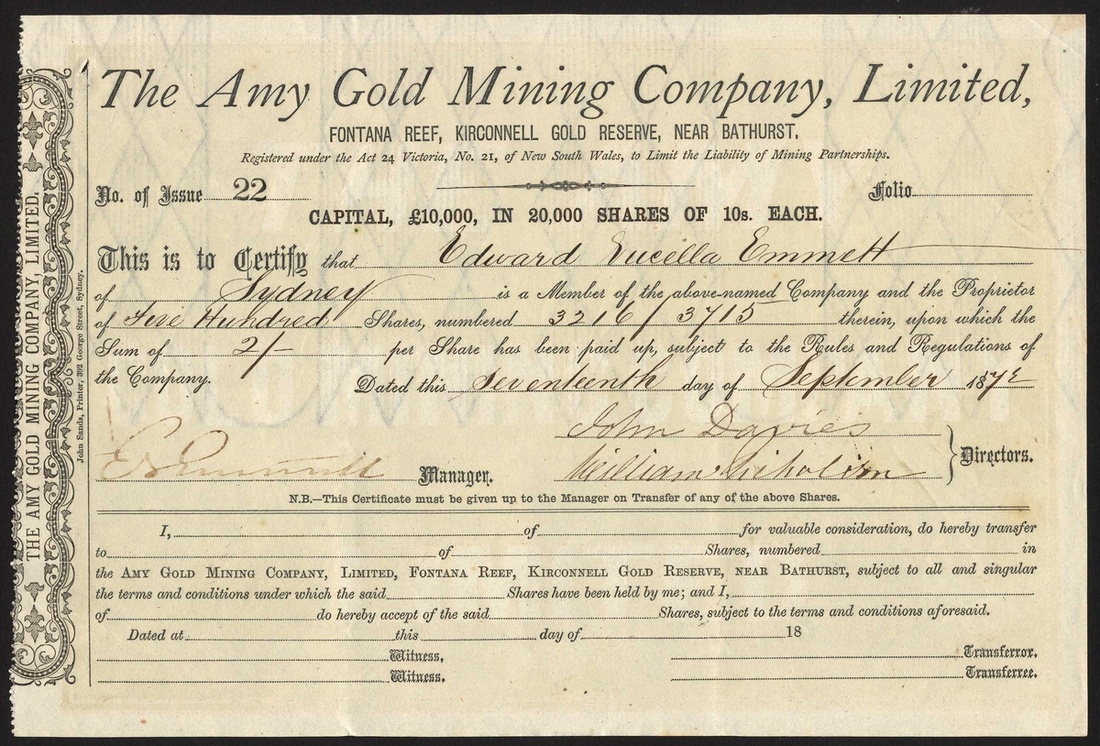 The Amy Gold Mining Company, Limited,
FONTANA REEF, KIRCONNELL GOLD RESERVE, NEAR BATHURST.
Registered under the Act 24 Victoria, No. 21, of New South Wales, to Limit the Liability of Mining Partnerships.
No. of Issue 22 Folio
CAPITAL, £10,000, IN 20,000 SHARES OF 10s. EACH.
This is to Certify that Edward Emmett
of Sydney is a Member of the above-named Company and the Proprietor
of Five Hundred Shares, numbered 3216/3715 therein, upon which the
Sum of 2/- per Share has been paid up, subject to the Rules and Regulations of
the Company. Dated this Seventeenth day of September 1872
John Davies
E Emmett Manager. William Directors.
N.B.—This Certificate must be given up to the Manager on Transfer of any of the above Shares.
I, of for valuable consideration, do hereby transfer
to of Shares, numbered in
the AMY GOLD MINING COMPANY, LIMITED, FONTANA REEF, KIRCONNELL GOLD RESERVE, NEAR BATHURST, subject to all and singular
the terms and conditions under which the said Shares have been held by me; and I,
of do hereby accept of the said Shares, subject to the terms and conditions aforesaid.
Dated at this day of 18
Witness, Transferror.
Witness. Transferree.
THE AMY GOLD MINING COMPANY, LIMITED.
John Sands, Printer, 392 George Street, Sydney.